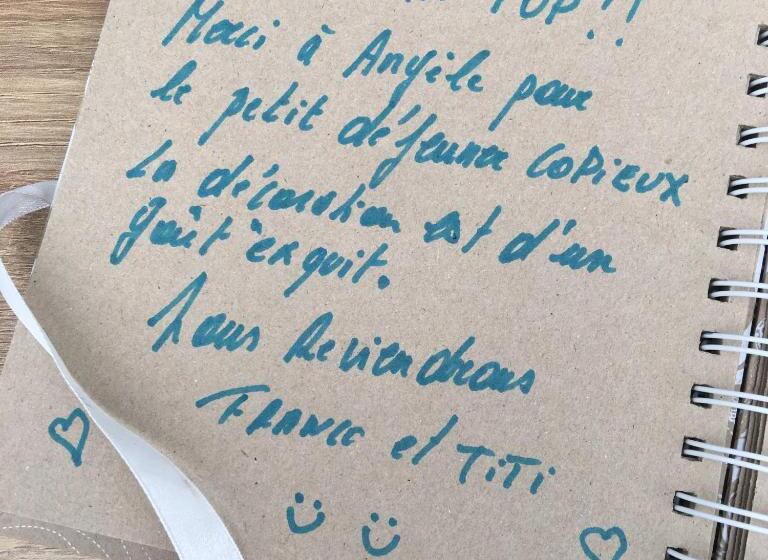 TOP!!
Merci à Angèle pour
le petit déjeuner COPIEUX
La décoration est d'un
goût "exquit.
Nous Reviendrons
FRANCE et TiTi